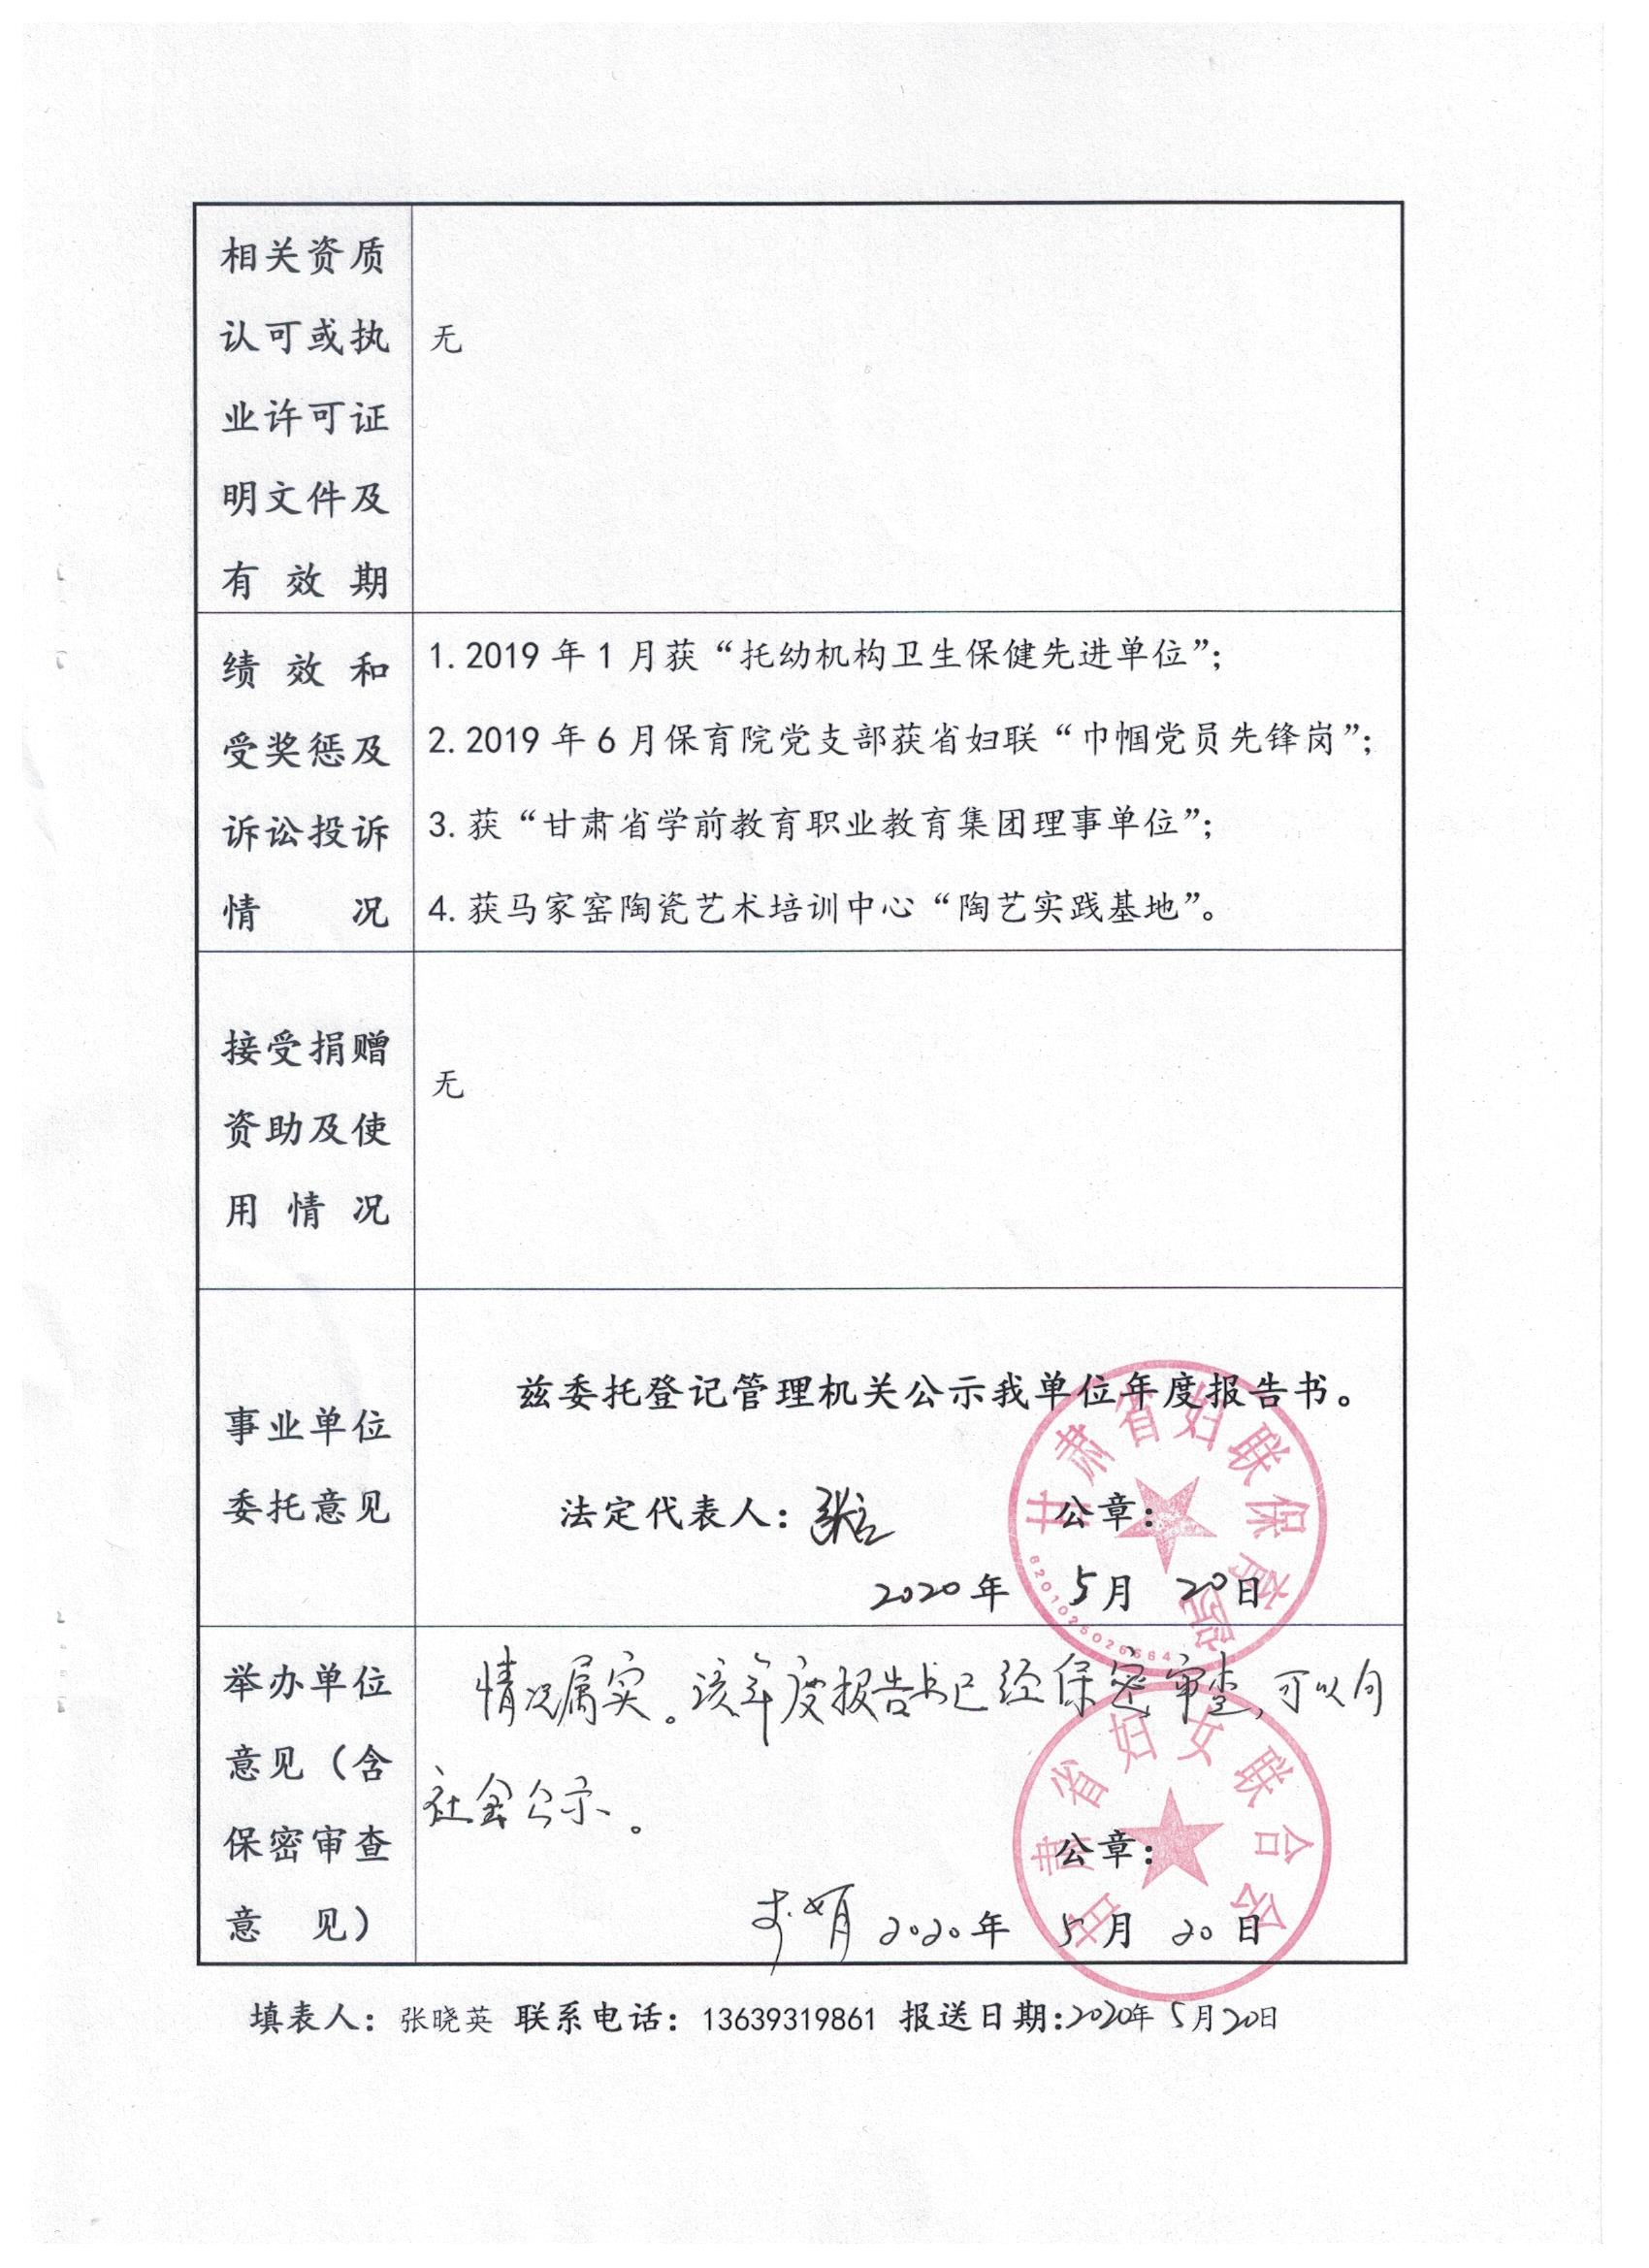 相关资质
认可或执
业许可证
明文件及
有效期
无
绩效和
受奖惩及
诉讼投诉
情况
1.2019年1月获“托幼机构卫生保健先进单位”；
2.2019年6月保育院党支部获省妇联“巾帼党员先锋岗”；
3.获“甘肃省学前教育职业教育集团理事单位”；
4.获马家窑陶瓷艺术培训中心“陶艺实践基地”。
接受捐赠
资助及使
用情况
无
事业单位
委托意见
兹委托登记管理机关公示我单位年度报告书。
法定代表人：
公章：
2020年 5月 20日
甘肃省妇联保育院
举办单位
意见（含
保密审查
意见）
情况属实。该年度报告书已经保密审查，可以向
社会公示。
公章：
2020年 5月 20日
甘肃省妇女联合会
填表人：张晓英 联系电话：13639319861 报送日期:2020年5月20日